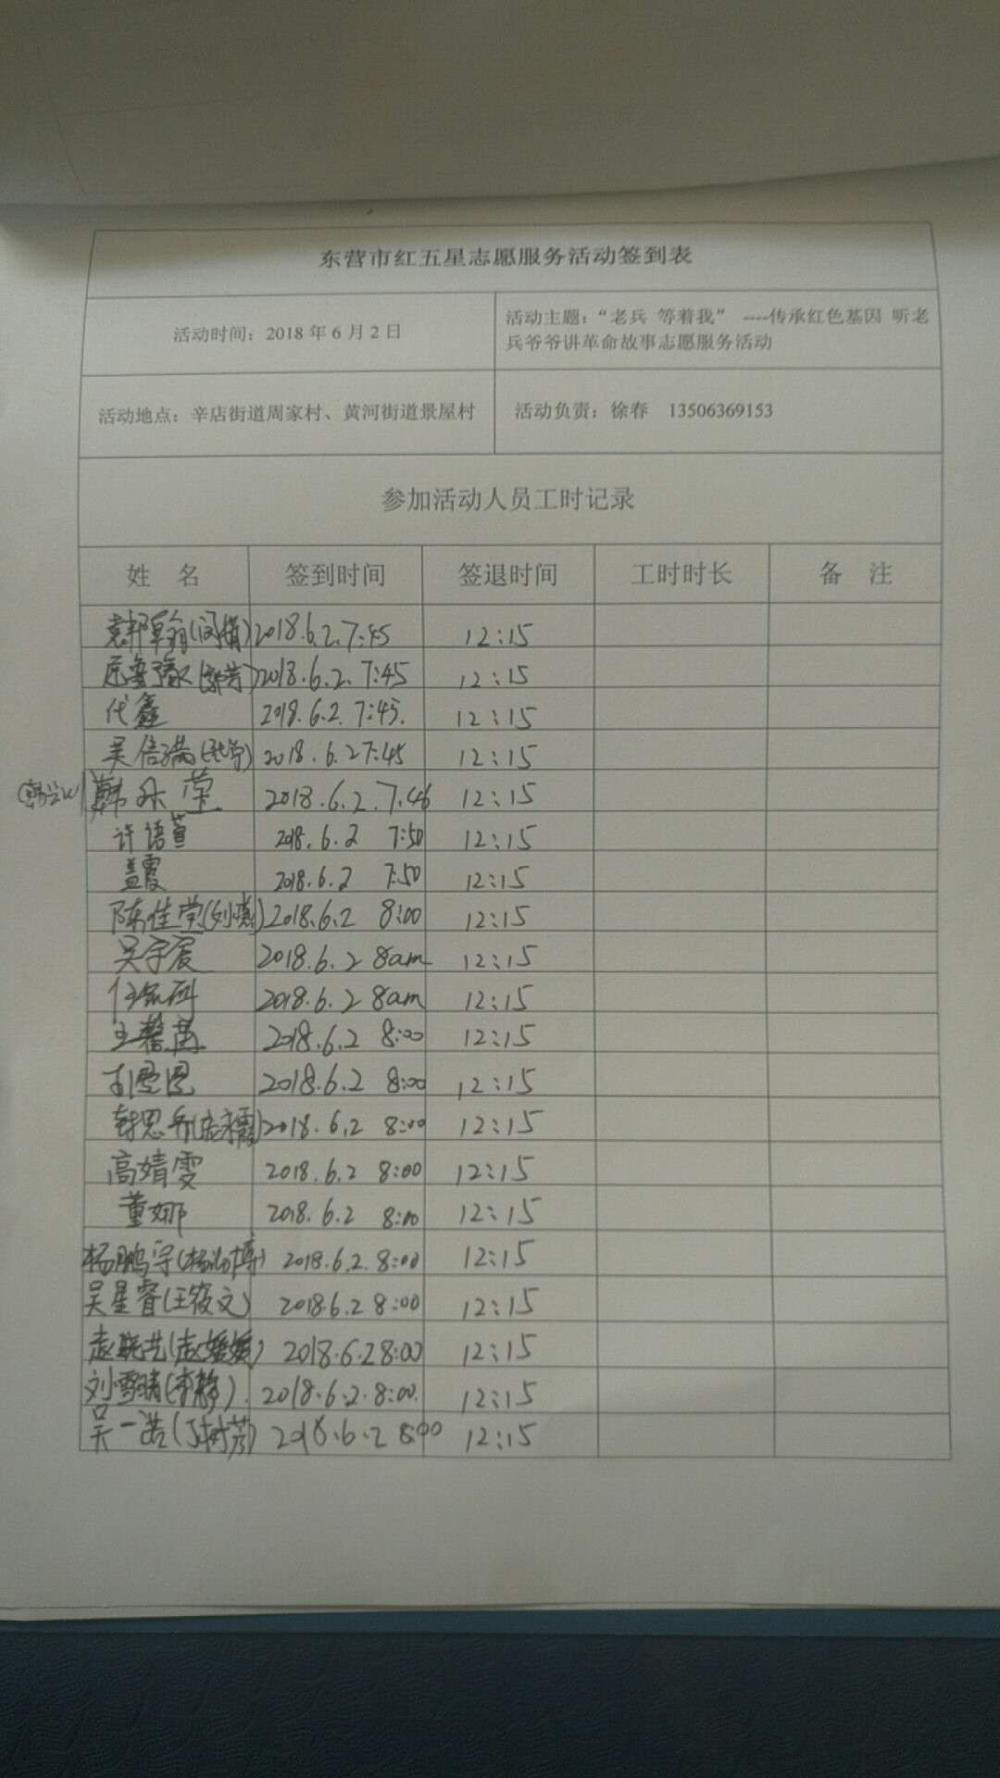 东营市红五星志愿服务活动签到表
活动时间：2018 年 6 月 2 日
活动主题：“老兵 等着我” ----传承红色基因 听老
兵爷爷讲革命故事志愿服务活动
活动地点：辛店街道周家村、黄河街道景屋村
活动负责：徐春 13506369153
参加活动人员工时记录
姓 名 签到时间 签退时间 工时时长 备 注
2018.6.2.7:45 12:15
2018.6.2. 7:45 12:15
代鑫 2018.6.2. 7:45. 12:15
吴 2018.6.2 7:45 12:15
韩 2018.6.2.7.46 12:15
许语萱 2018.6.2 7:50 12:15
盖霞 2018.6.2 7:50 12:15
陈佳莹 2018.6.2 8:00 12:15
吴宇宸 2018.6.2 8am 12:15
2018.6.2 8am 12:15
王馨 2018.6.2 8:00 12:15
2018.6.2 8:00 12:15
2018.6.2 8:00 12:15
高婧雯 2018.6.2 8:00 12:15
董娜 2018.6.2 8:00 12:15
杨鹏宇 2018.6.2.8:00 12:15
吴星睿(王筱文) 2018.6.2 8:00 12:15
赵晓艺(赵媛媛) 2018.6.2 8:00 12:15
刘雪晴(李静) 2018.6.2.8:00. 12:15
吴一诺 2018.6.2 8:00 12:15